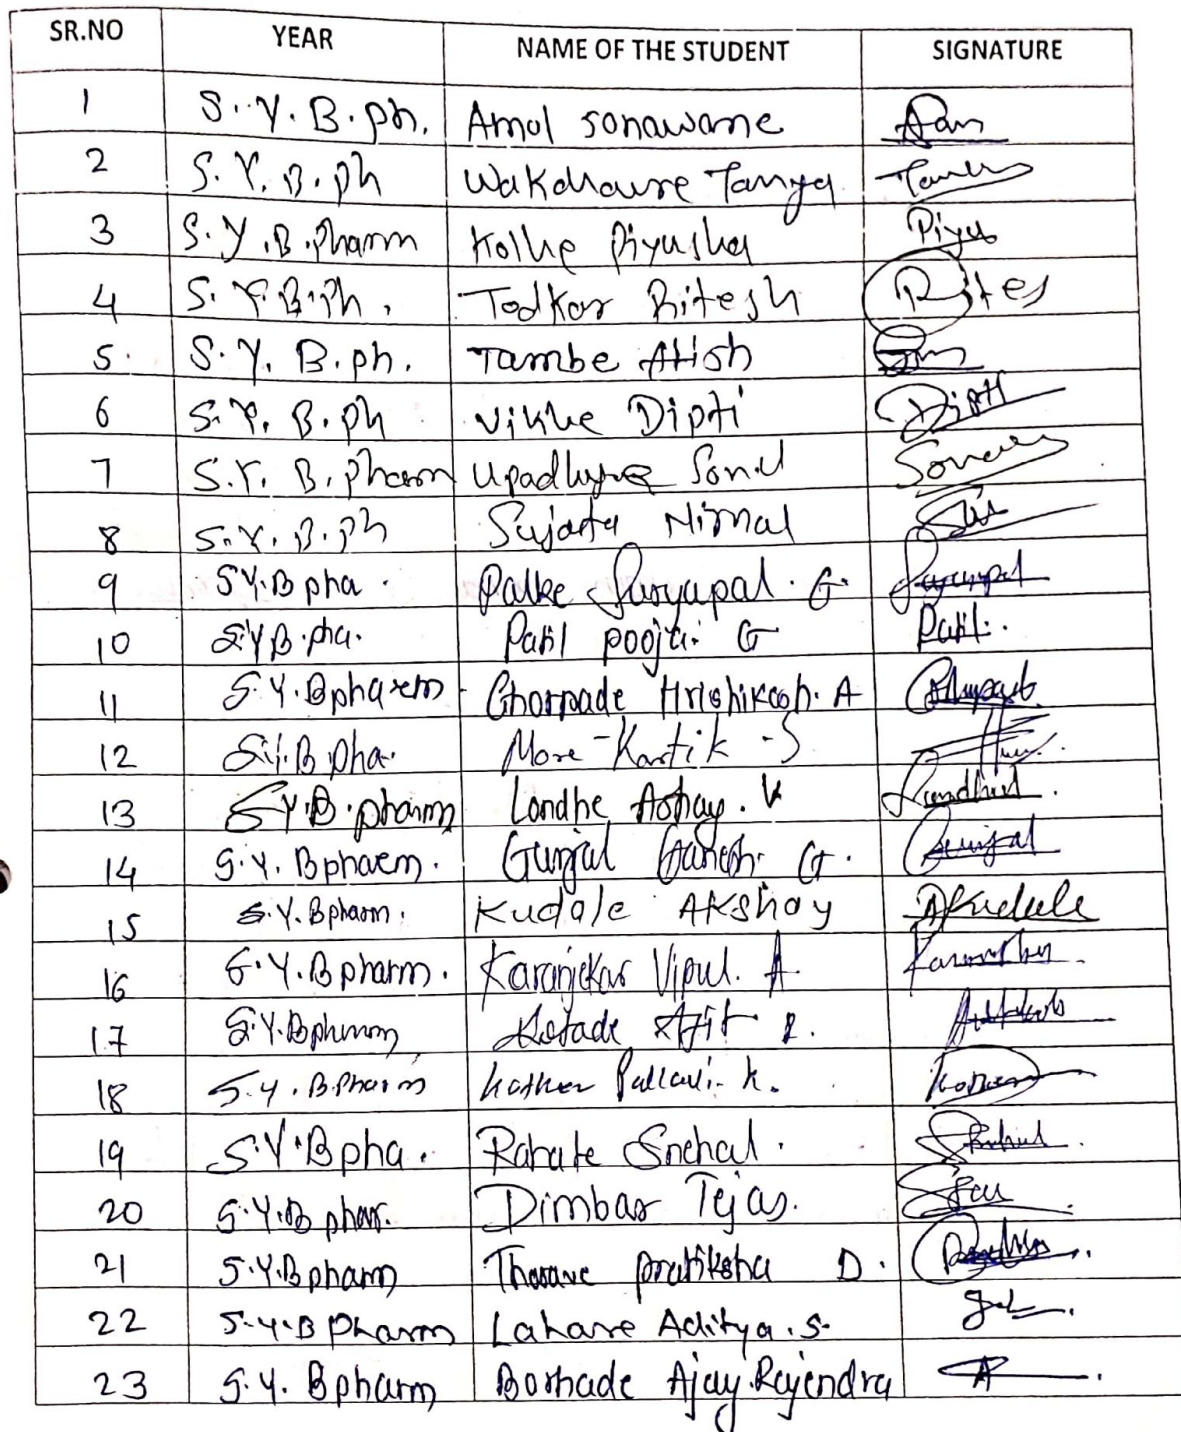 SR.NO YEAR NAME OF THE STUDENT SIGNATURE
1 S.Y.B.ph. Amol sonawane
2 S.Y.B.ph Wakchaure Tanya
3 S.Y.B.Pharm Kolhe Piyusha Piyu
4 S.Y.B.Ph. Todkar Ritesh Rites
5. S.Y.B.ph. Tambe Atish
6 S.Y.B.ph Vikhe Dipti Dipti
7 S.Y.B.Pharm Upadhyay
8 S.Y.B.ph Sujata Nirmal
9 S.Y.B pha. Palke Suryapal.G. Suryapal
10 S.Y.B.pha. Patil pooja. G Patil.
11 S.Y.Bpharm Ghorpade Hrishikesh.A
12 S.Y.B.pha. More Kartik -S
13 S.Y.B.pharm Londhe Abhay.V
14 S.Y.Bpharm. Gunjal Ganesh. G. Gunjal
15 S.Y.Bpharm. Kudale Akshay AKudale
16 S.Y.Bpharm. Karanjekar Vipul. A.
17 S.Y.Bpharm Ajit
18 S.Y.B.Pharm Pallavi. k.
19 S.Y.Bpha. Rahate Snehal.
20 S.Y.B phar. Dimbar Tejas.
21 S.Y.Bpharm Thorave pratiksha D.
22 S.Y.B Pharm Lahare Aditya.S.
23 S.Y.Bpharm Borhade Ajay.Rajendra